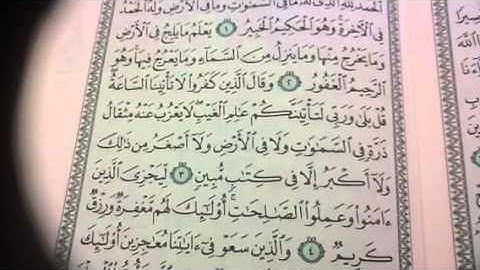 الحمد لله الذي له ما في السموت وما في الأرض وله الحمد
في الأخرة وهو الحكيم الخبير ١ يعلم ما يلج في الأرض
وما يخرج منها وما ينزل من السماء وما يعرج فيها وهو
الرحيم الغفور ٢ وقال الذين كفروا لا تأتينا الساعة
قل بلى وربي لتأتينكم علم الغيب لا يعزب عنه مثقال
ذرة في السموت ولا في الأرض ولا أصغر من ذلك
ولا أكبر إلا في كتب مبين ٣ ليجزي الذين
ءامنوا وعملوا الصلحت أولئك لهم مغفرة ورزق
كريم ٤ والذين سعو في ءايتنا معجزين أولئك